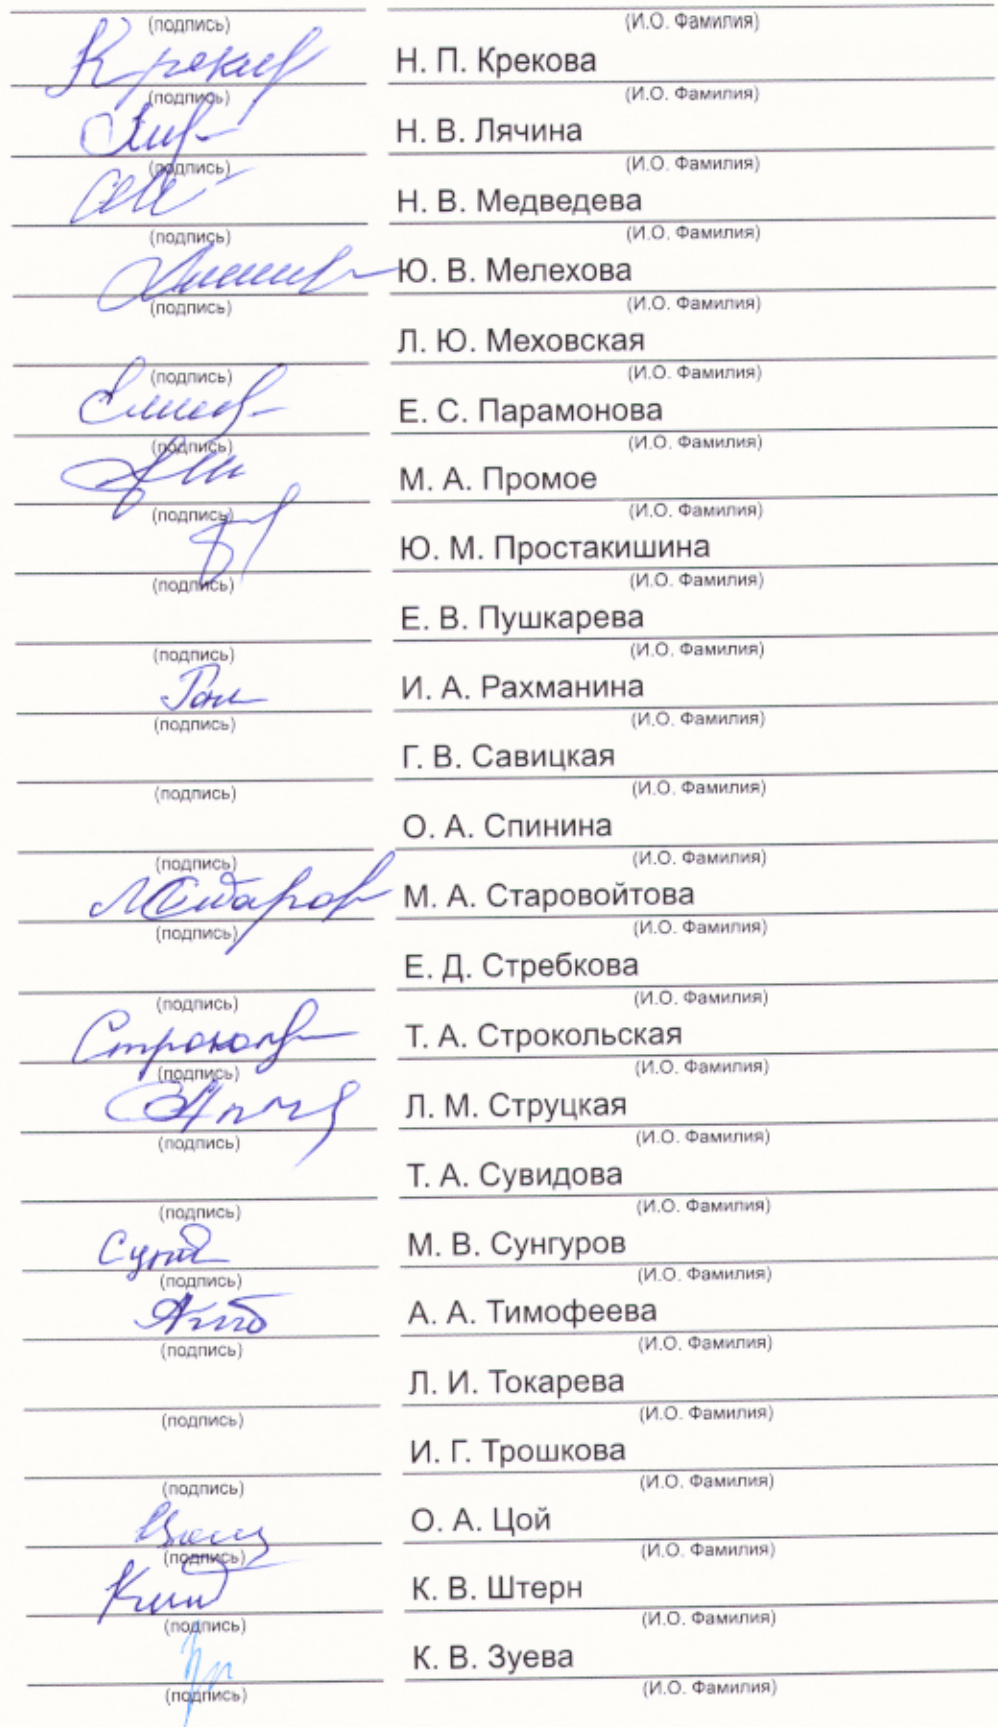 (подпись) (И.О. Фамилия)
Н. П. Крекова
(подпись) (И.О. Фамилия)
Н. В. Лячина
(подпись) (И.О. Фамилия)
Н. В. Медведева
(подпись) (И.О. Фамилия)
Ю. В. Мелехова
(подпись) (И.О. Фамилия)
Л. Ю. Меховская
(подпись) (И.О. Фамилия)
Е. С. Парамонова
(подпись) (И.О. Фамилия)
М. А. Промое
(подпись) (И.О. Фамилия)
Ю. М. Простакишина
(подпись) (И.О. Фамилия)
Е. В. Пушкарева
(подпись) (И.О. Фамилия)
И. А. Рахманина
(подпись) (И.О. Фамилия)
Г. В. Савицкая
(подпись) (И.О. Фамилия)
О. А. Спинина
(подпись) (И.О. Фамилия)
М. А. Старовойтова
(подпись) (И.О. Фамилия)
Е. Д. Стребкова
(подпись) (И.О. Фамилия)
Т. А. Строкольская
(подпись) (И.О. Фамилия)
Л. М. Струцкая
(подпись) (И.О. Фамилия)
Т. А. Сувидова
(подпись) (И.О. Фамилия)
М. В. Сунгуров
(подпись) (И.О. Фамилия)
А. А. Тимофеева
(подпись) (И.О. Фамилия)
Л. И. Токарева
(подпись) (И.О. Фамилия)
И. Г. Трошкова
(подпись) (И.О. Фамилия)
О. А. Цой
(подпись) (И.О. Фамилия)
К. В. Штерн
(подпись) (И.О. Фамилия)
К. В. Зуева
(подпись) (И.О. Фамилия)